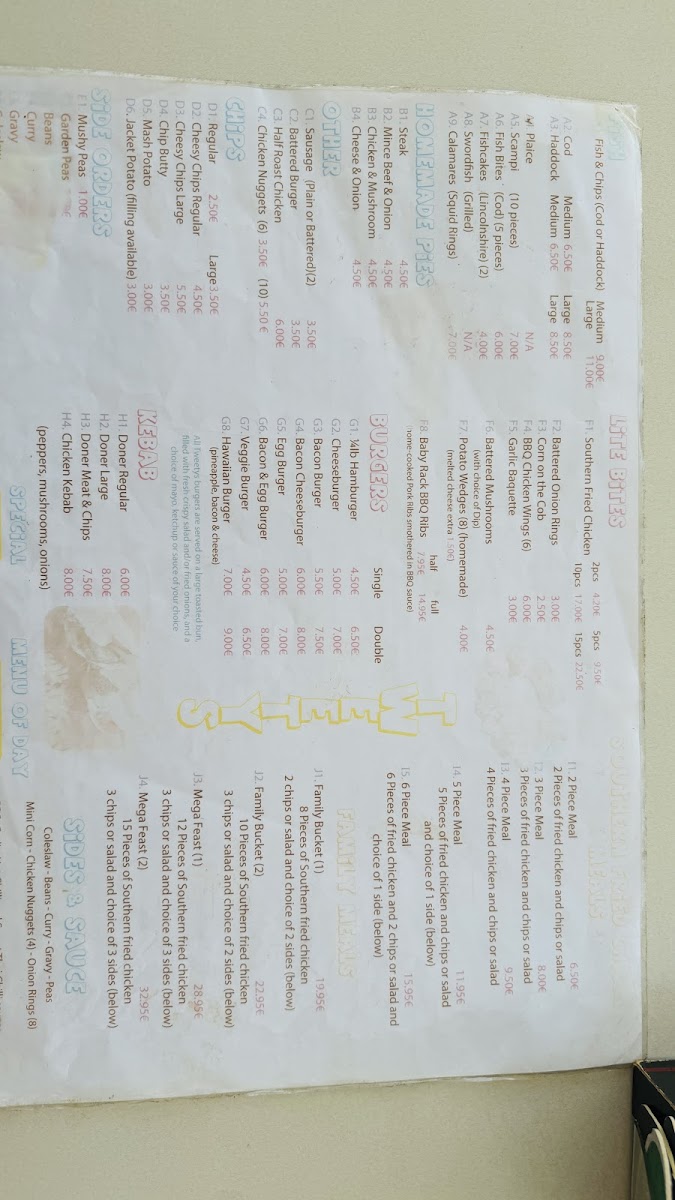 Fish & Chips (Cod or Haddock) Medium 9.00€
Large 11.00€
A2. Cod Medium 6.50€ Large 8.50€
A3. Haddock Medium 6.50€ Large 8.50€
Plaice N/A
A5. Scampi (10 pieces) 7.00€
A6. Fish Bites (Cod) (5 pieces) 6.00€
A7. Fishcakes (Lincolnshire) (2) 4.00€
A8. Swordfish (Grilled) N/A
A9. Calamares (Squid Rings) 7.00€
HOMEMADE PIES
B1. Steak 4.50€
B2. Mince Beef & Onion 4.50€
B3. Chicken & Mushroom 4.50€
B4. Cheese & Onion 4.50€
OTHER
C1. Sausage (Plain or Battered)(2) 3.50€
C2. Battered Burger 3.50€
C3. Half Roast Chicken 6.00€
C4. Chicken Nuggets (6) 3.50€ (10) 5.50€
CHIPS
D1. Regular 2.50€ Large 3.50€
D2. Cheesy Chips Regular 4.50€
D3. Cheesy Chips Large 5.50€
D4. Chip Butty 3.50€
D5. Mash Potato 3.00€
D6. Jacket Potato (filling available) 3.00€
SIDE ORDERS
E1. Mushy Peas 1.00€
Garden Peas
Beans
Curry
Gravy
LITE BITES
F1. Southern Fried Chicken 2pcs 4.20€ 5pcs 9.50€
10pcs 17.00€ 15pcs 22.50€
F2. Battered Onion Rings 3.00€
F3. Corn on the Cob 2.50€
F4. BBQ Chicken Wings (6) 6.00€
F5. Garlic Baquette 3.00€
F6. Battered Mushrooms 4.50€
(with choice of Dip)
F7. Potato Wedges (8) (homemade) 4.00€
(melted cheese extra 1.50€)
half full
F8. Baby Rack BBQ Ribs 7.95€ 14.95€
home-cooked Pork Ribs smothered in BBQ sauce)
BURGERS
Single Double
G1. ¼lb Hamburger 4.50€ 6.50€
G2. Cheeseburger 5.00€ 7.00€
G3. Bacon Burger 5.50€ 7.50€
G4. Bacon Cheeseburger 6.00€ 8.00€
G5. Egg Burger 5.00€ 7.00€
G6. Bacon & Egg Burger 6.00€ 8.00€
G7. Veggie Burger 4.50€ 6.50€
G8. Hawaiian Burger 7.00€ 9.00€
(pineapple, bacon & cheese)
All Tweetys burgers are served on a large toasted bun,
filled with fresh crispy salad and/or fried onions, and a
choice of mayo, ketchup or sauce of your choice
KEBAB
H1. Doner Regular 6.00€
H2. Doner Large 8.00€
H3. Doner Meat & Chips 7.50€
H4. Chicken Kebab 8.00€
(peppers, mushrooms, onions)
SPECIAL
TWEETYS
MEALS
I1. 2 Piece Meal 6.50€
2 Pieces of fried chicken and chips or salad
I2. 3 Piece Meal 8.00€
3 Pieces of fried chicken and chips or salad
I3. 4 Piece Meal 9.50€
4 Pieces of fried chicken and chips or salad
I4. 5 Piece Meal 11.95€
5 Pieces of fried chicken and chips or salad
and choice of 1 side (below)
I5. 6 Piece Meal 15.95€
6 Pieces of fried chicken and 2 chips or salad and
choice of 1 side (below)
FAMILY MEALS
J1. Family Bucket (1) 19.95€
8 Pieces of Southern fried chicken
2 chips or salad and choice of 2 sides (below)
J2. Family Bucket (2) 22.95€
10 Pieces of Southern fried chicken
3 chips or salad and choice of 2 sides (below)
J3. Mega Feast (1) 28.95€
12 Pieces of Southern fried chicken
3 chips or salad and choice of 3 sides (below)
J4. Mega Feast (2) 32.95€
15 Pieces of Southern fried chicken
3 chips or salad and choice of 3 sides (below)
SIDES & SAUCE
Coleslaw - Beans - Curry - Gravy - Peas
Mini Corn - Chicken Nuggets (4) - Onion Rings (8)
MENU OF DAY